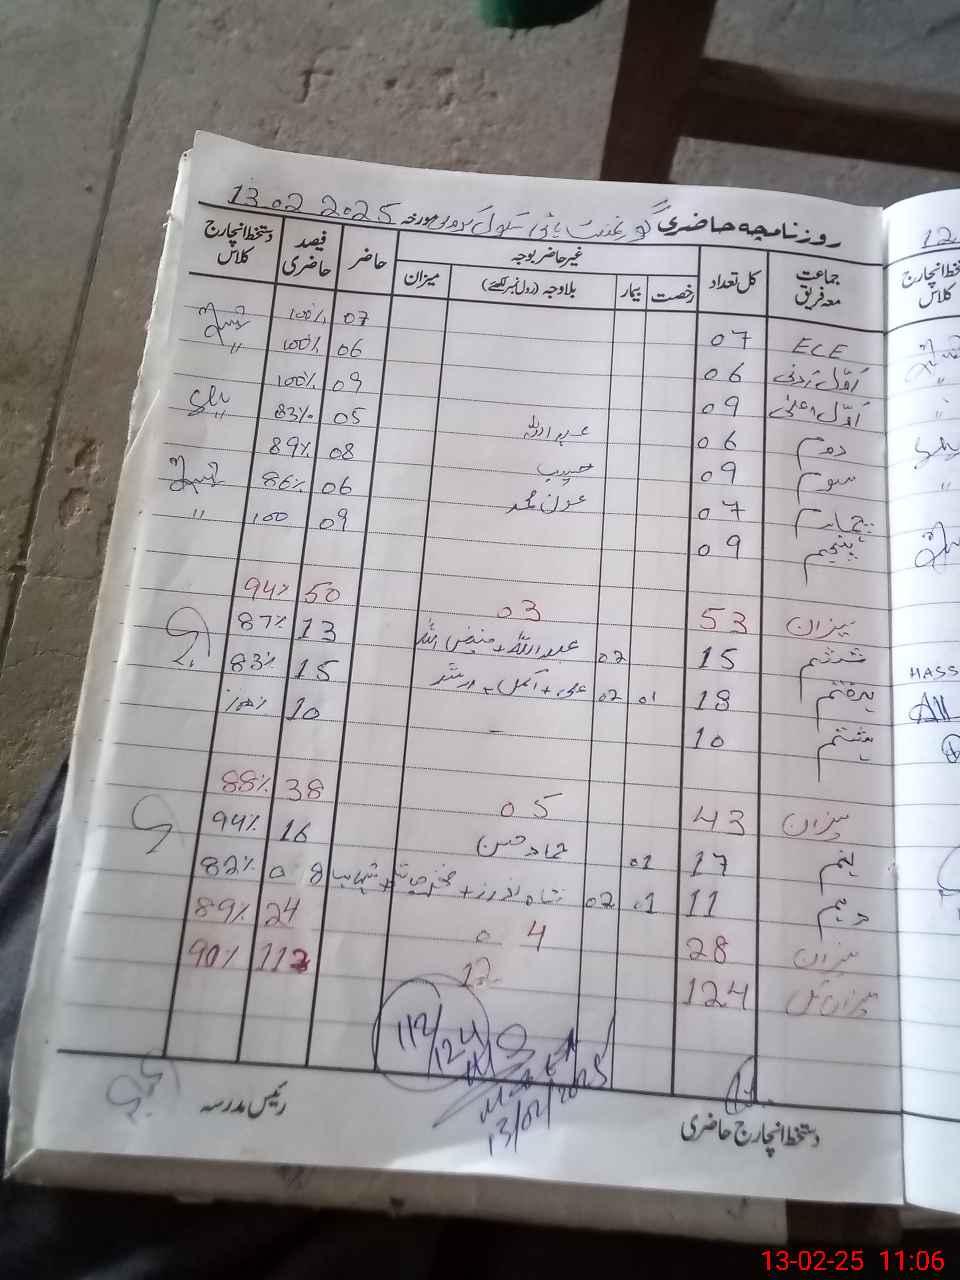 روزنامچہ حاضری گورنمنٹ ہائی سکول مورخہ 13.02.2025
جماعت معہ فریق کل تعداد غیر حاضر بوجہ حاضر فیصد حاضری دستخط انچارج کلاس
رخصت بیمار بلاوجہ (رول نمبر لکھیے) میزان
ECE 07 07 100%
اوّل ادنیٰ 06 06 100% "
اوّل اعلیٰ 09 09 100%
دوم 06 عبداللہ 05 83% "
سوم 09 حبیب 08 89%
چہارم 07 عون محمد 06 86%
پنجم 09 09 100 "
میزان 53 03 50 94%
ششم 15 02 عبداللہ + فیض اللہ 13 87%
ہفتم 18 01 02 علی + اکمل + ارشد 15 83%
ہشتم 10 - 10 100%
میزان 43 05 38 88%
نہم 17 01 حماد حسن 16 94%
دہم 11 01 02 08 82%
میزان 28 04 24 89%
میزان کل 124 12 112 90%
112/124
13/02/2025
دستخط انچارج حاضری رئیس مدرسہ
12
دستخط انچارج کلاس
"
"
HASS
All
13-02-25 11:06